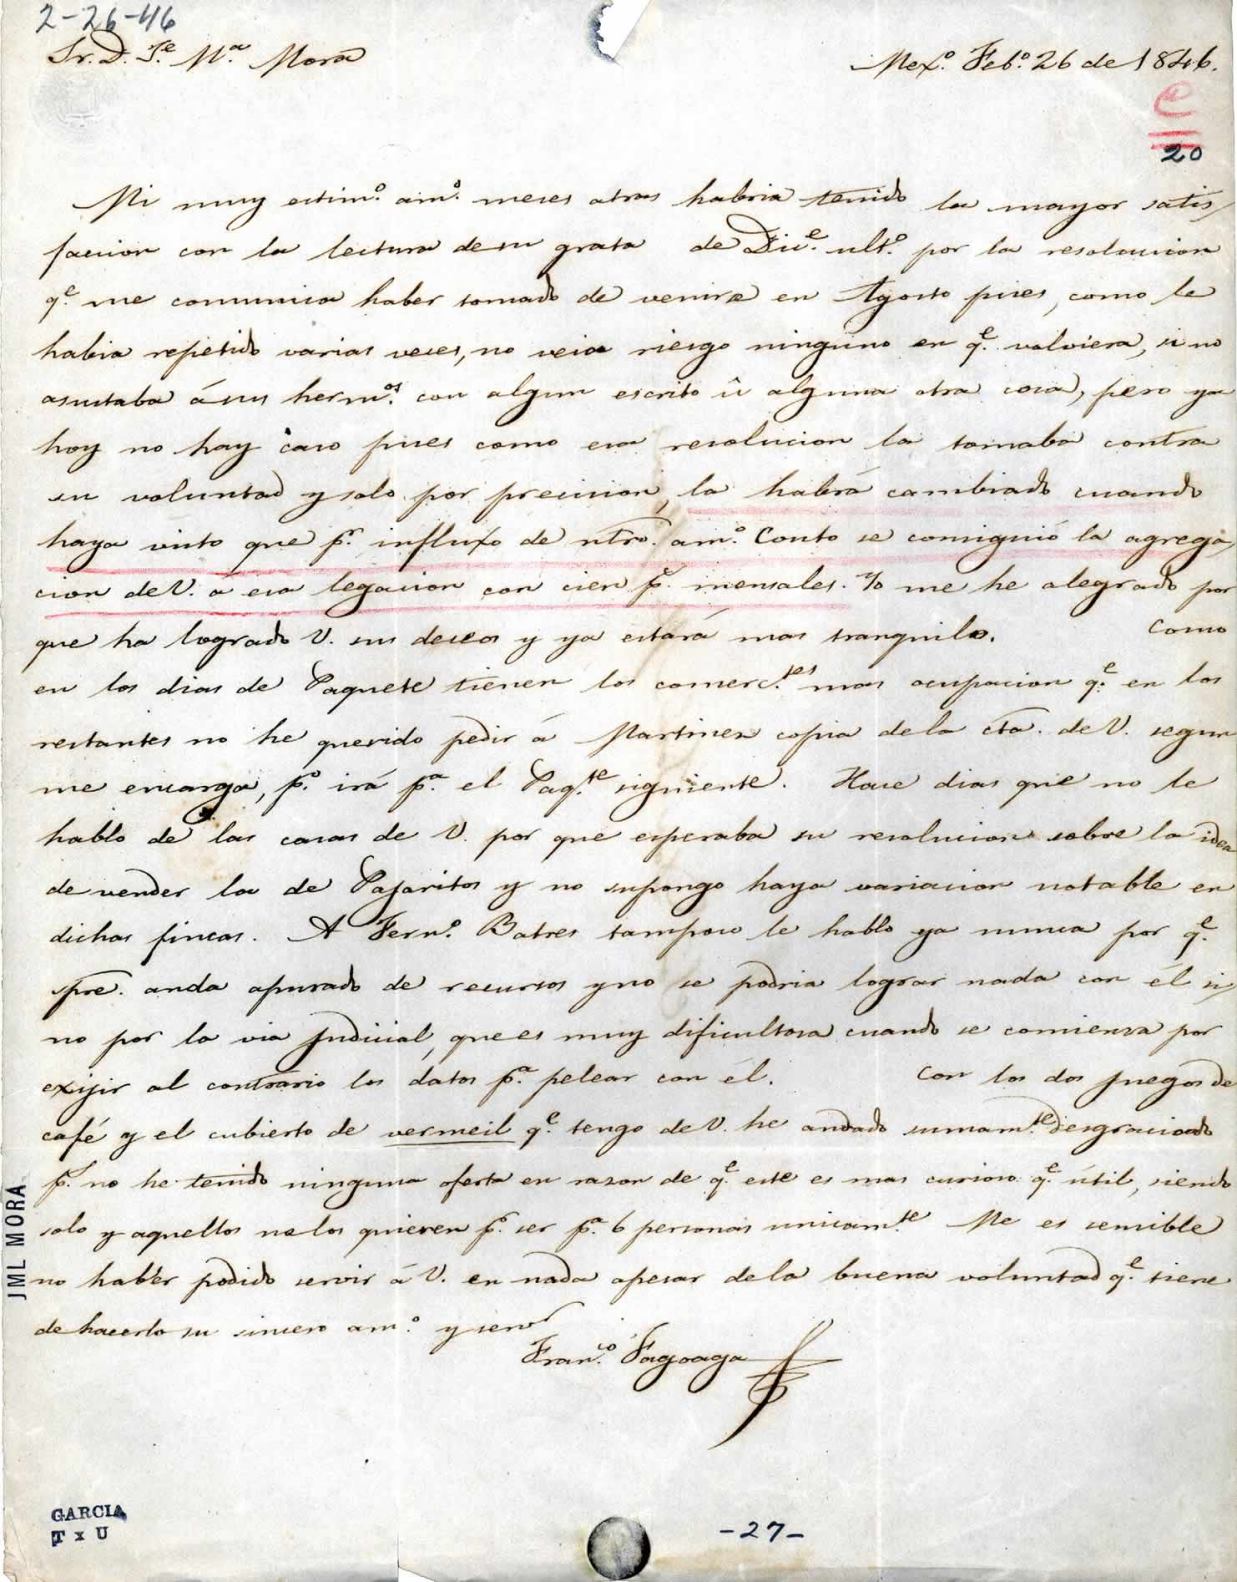 2-26-46
Sr. D. Je. Ma. Mora
Mexo. Febo. 26 de 1846.
C
20
Mi muy estimo. amo. meses atras habria tenido la mayor satis
faccion con la lectura de su grata de Dice. ulto. por la resolucion
qe. me comunica haber tomado de venirse en Agosto pues, como le
habia repetido varias veces, no veia riesgo ninguno en qe. volviera, si no
asustaba á sus hermos. con algun escrito ú alguna otra cosa, pero ya
hoy no hay caso pues como esa resolucion la tomaba contra
su voluntad y solo por precision, la habrá cambiado cuando
haya visto que pr. influxo de ntro. amo. Couto se consiguió la agrega
cion de V. a esa legacion con cien ps. mensales. Yo me he alegrado por
que ha logrado V. sus deseos y ya estará mas tranquilo. Como
en los dias de Paquete tienen los comerctes. mas ocupacion qe. en los
restantes no he querido pedir á Martinez copia de la cta. de V. segun
me encarga, po. irá pa. el Paqte. siguiente. Hace dias que no le
hablo de las casas de V. por que esperaba su resolucion sobre la idea
de vender la de Pajaritos y no supongo haya variacion notable en
dichas fincas. A Ferno. Batres tampoco le hablo ya nunca por qe.
pre. anda apurado de recursos y no se podria lograr nada con él si
no por la via judicial, que es muy dificultosa cuando se comienza por
exijir al contrario los datos pa. pelear con él. Con los dos juegos de
café y el cubierto de vermeil qe. tengo de V. he andado sumamte. desgraciado
ps. no he tenido ninguna oferta en razon de qe. este es mas curioso qe. útil, siendo
solo y aquellos no los quieren pr. ser pa. 6 personas unicamte. Me es sensible
no haber podido servir á V. en nada apesar de la buena voluntad qe. tiene
de hacerlo su sincero amo. y servr.
Franco. Fagoaga
JML MORA
GARCIA
T x U
-27-